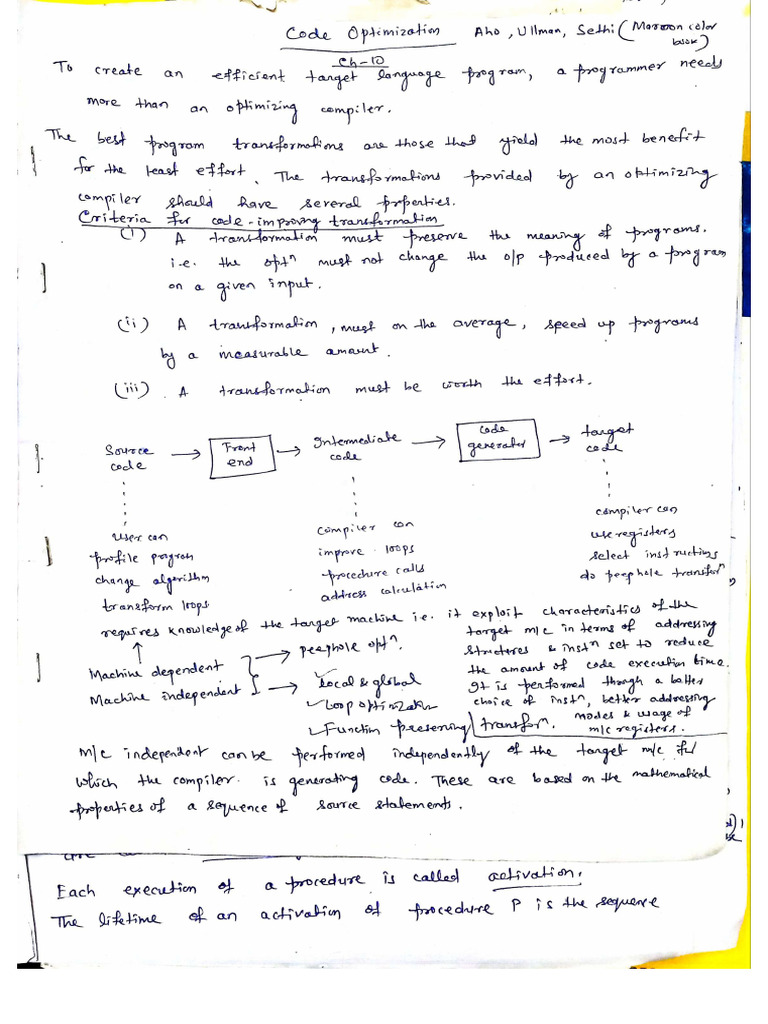 Code Optimization Aho, Ullman, Sethi (Maroon color book)
Ch-10
To create an efficient target language program, a programmer needs
more than an optimizing compiler.
The best program transformations are those that yield the most benefit
for the least effort. The transformations provided by an optimizing
compiler should have several properties.
Criteria for code-improving transformation
(i) A transformation must preserve the meaning of programs.
i.e. the optⁿ must not change the o/p produced by a program
on a given input.
(ii) A transformation, must on the average, speed up programs
by a measurable amount.
(iii) A transformation must be worth the effort.
Source code → Front end → Intermediate code → Code generator → target code
user can
profile program
change algorithm
transform loops
compiler can
improve loops
procedure calls
address calculation
compiler can
use registers
select instructions
do peephole transforⁿ
requires knowledge of the target machine i.e. it exploit characteristics of the
target m/c in terms of addressing
structures & instⁿ set to reduce
the amount of code execution time.
It is performed through a better
choice of instⁿ, better addressing
modes & usage of
m/c registers.
Machine dependent → peephole optⁿ.
Machine independent → Local & global
Loop optimization
Function preserving transforⁿ.
M/c independent can be performed independently of the target m/c for
which the compiler is generating code. These are based on the mathematical
properties of a sequence of source statements.
Each execution of a procedure is called activation.
The lifetime of an activation of procedure P is the sequence